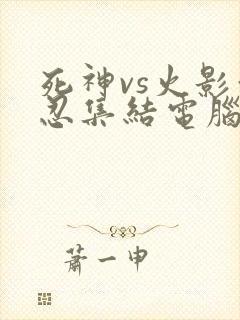 死神vs火影
忍集結電腦
蕭一申